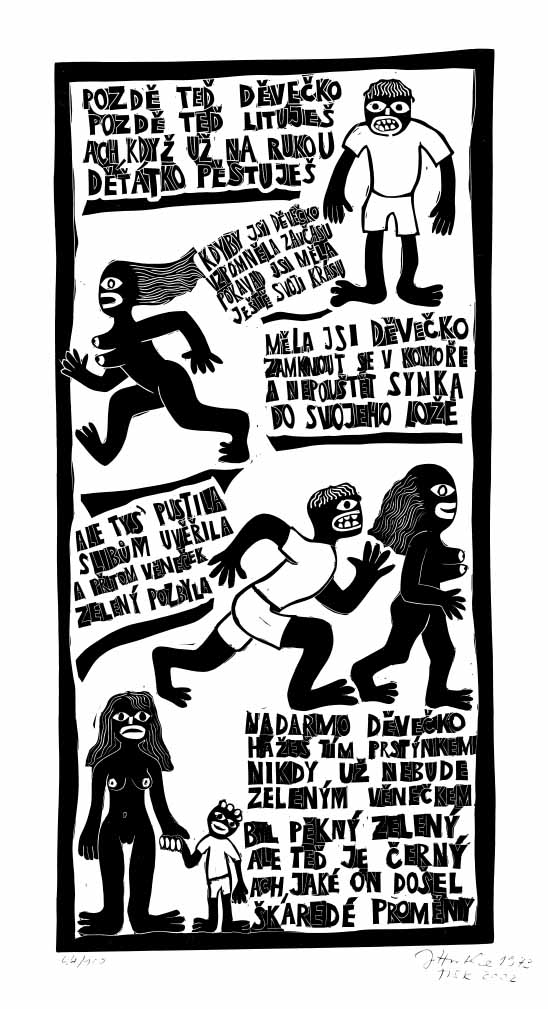 POZDĚ TEĎ DĚVEČKO
POZDĚ TEĎ LITUJEŠ
ACH, KDYŽ UŽ NA RUKOU
DĚŤÁTKO PĚSTUJEŠ
KDYBY JSI DĚVEČKO
VZPOMNĚLA ZAVČASU
POKAVÁD JSI MĚLA
JEŠTĚ SVOJI KRÁSU
MĚLA JSI DĚVEČKO
ZAMKNOUT SE V KOMOŘE
A NEPOUŠTĚT SYNKA
DO SVOJEHO LOŽE
ALE TYS PUSTILA
SLIBŮM UVĚŘILA
A PŘITOM VENEČEK
ZELENÝ POZBYLA
NADARMO DĚVEČKO
HÁŽEŠ TÍM PRSTÝNKEM
NIKDY UŽ NEBUDE
ZELENÝM VĚNEČKEM
BYL PĚKNÝ ZELENÝ
ALE TEĎ JE ČERNÝ
ACH, JAKÉ ON DOŠEL
ŠKAREDÉ PROMĚNY
/100 1972
TISK 2002